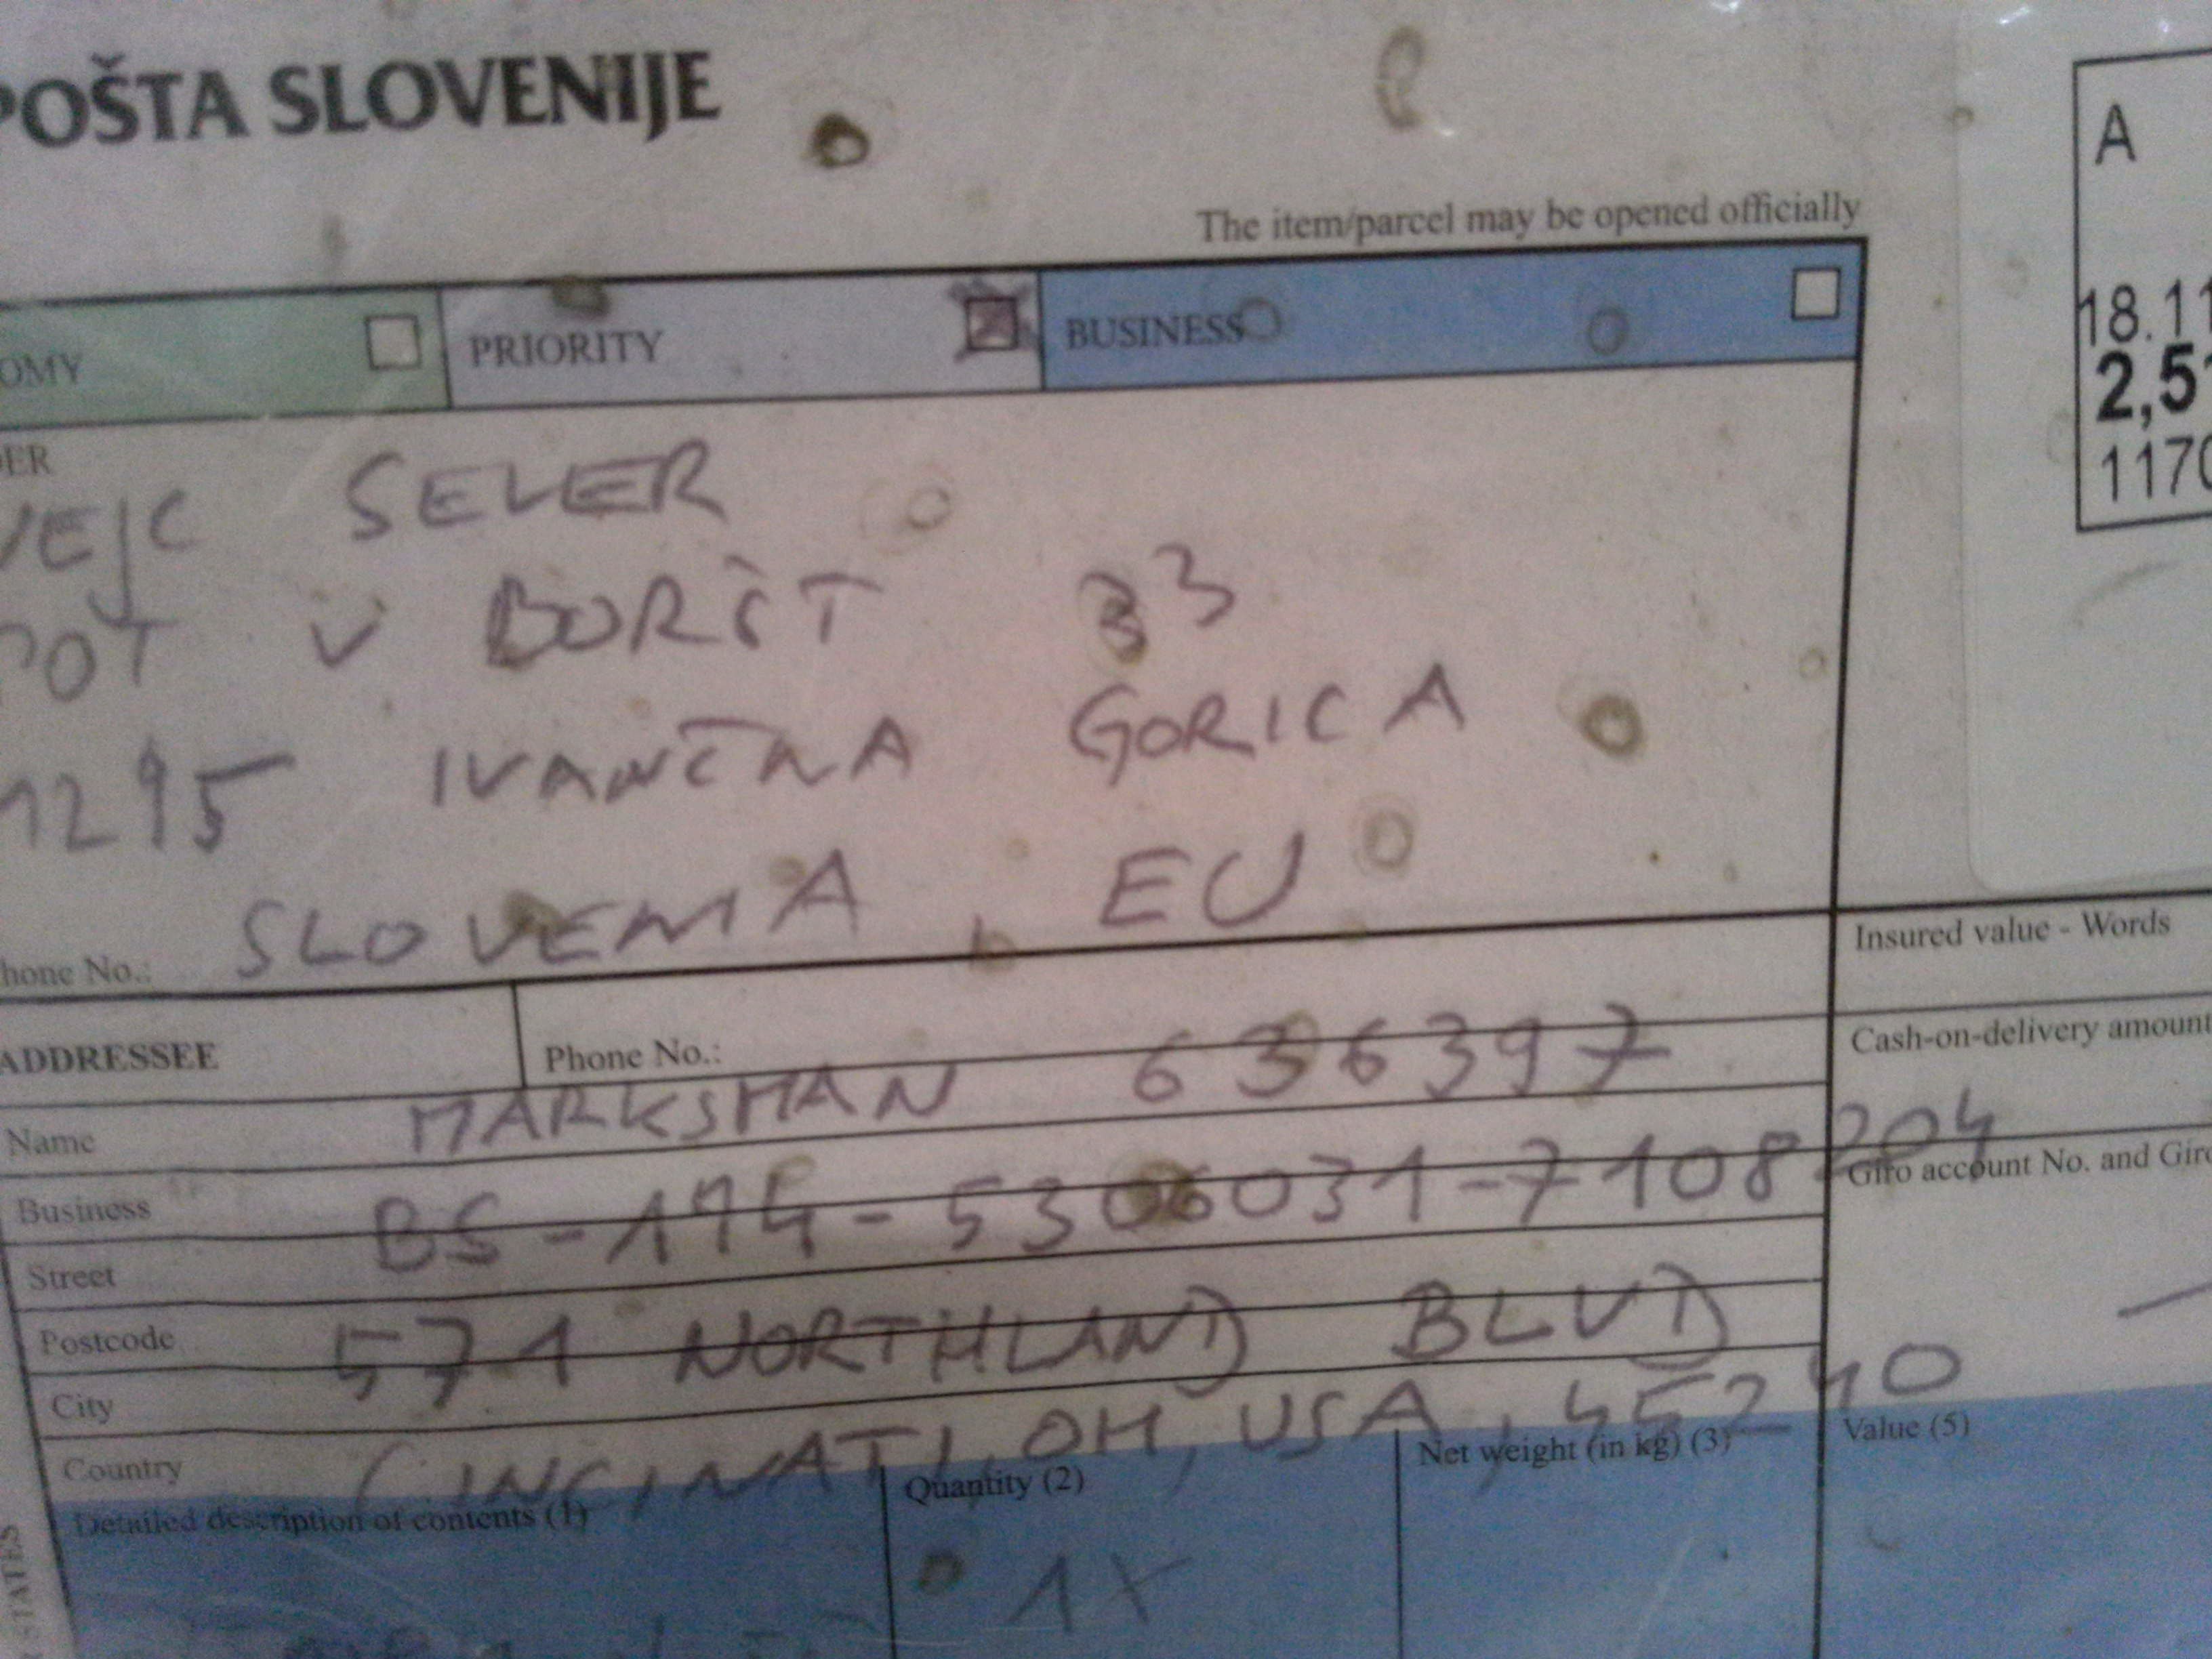 POŠTA SLOVENIJE
A
The item/parcel may be opened officially
18.11
2,51
1170
OMY PRIORITY BUSINESS
ER
VEJC SEVER
POT V BORŠT 33
1295 IVANČNA GORICA
SLOVENIA, EU
hone No.:
Insured value - Words
ADDRESSEE Phone No.:
Cash-on-delivery amount
Name MARKSMAN 636397
Business BS-194-5306031-7108204
Giro account No. and Giro
Street
Postcode 571 NORTHLAND BLVD
City
Country CINCINATI, OH, USA, 45240
Detailed description of contents (1) Quantity (2) Net weight (in kg) (3) Value (5)
1X
STATES